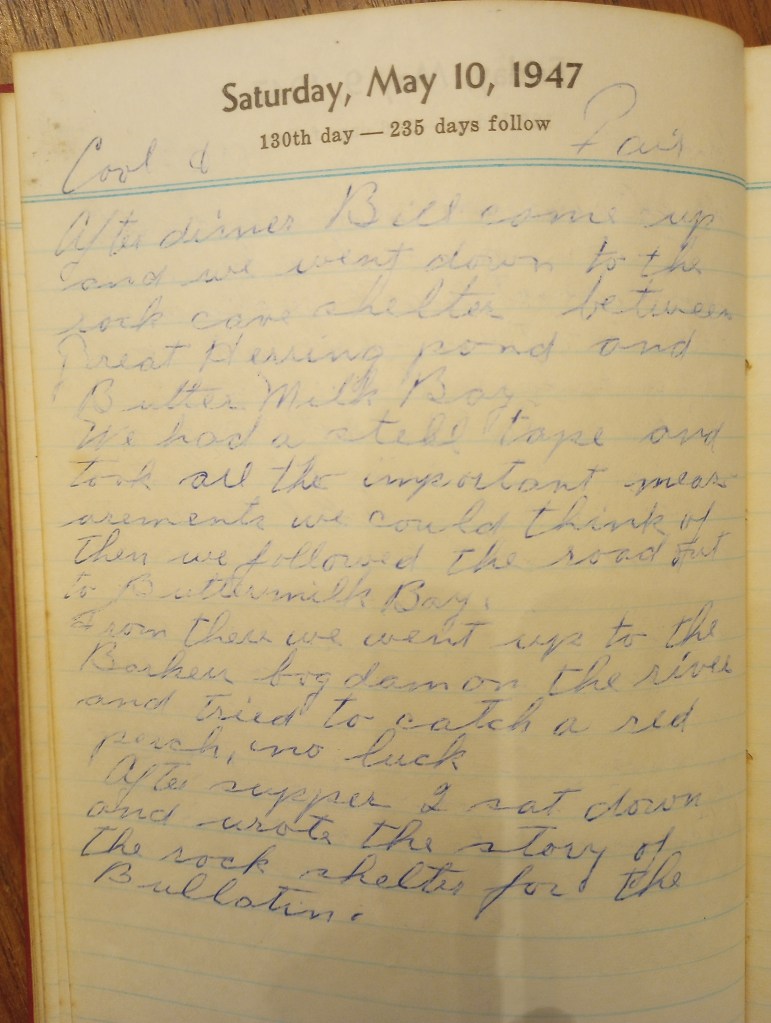 Saturday, May 10, 1947
130th day — 235 days follow
Cool & Fair
After dinner Bill come up
and we went down to the
rock cave shelter between
Great Herring pond and
Butter Milk Bay
We had a steel tape and
took all the important meas
urements we could think of
then we followed the road out
to Buttermilk Bay.
From there we went up to the
Barker bog dam on the river
and tried to catch a red
perch, no luck
After supper I sat down
and wrote the story of
the rock shelter for the
Bullatin.